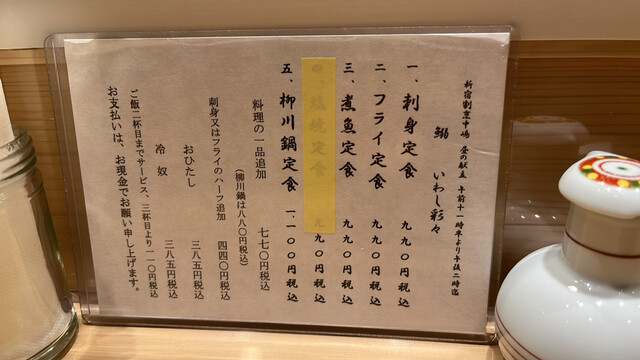 新宿割烹中嶋 昼の献立 午前十一時半より午後二時迄
鰯 いわし彩々
一、刺身定食 九九〇円税込
二、フライ定食 九九〇円税込
三、煮魚定食 九九〇円税込
定食 九九〇円税込
五、柳川鍋定食 一、一〇〇円税込
料理の一品追加 七七〇円税込
(柳川鍋は八八〇円税込)
刺身又はフライのハーフ追加 四四〇円税込
おひたし 三八五円税込
冷奴 三八五円税込
ご飯二杯目までサービス、三杯目より一一〇円税込
お支払いは、お現金でお願い申し上げます。